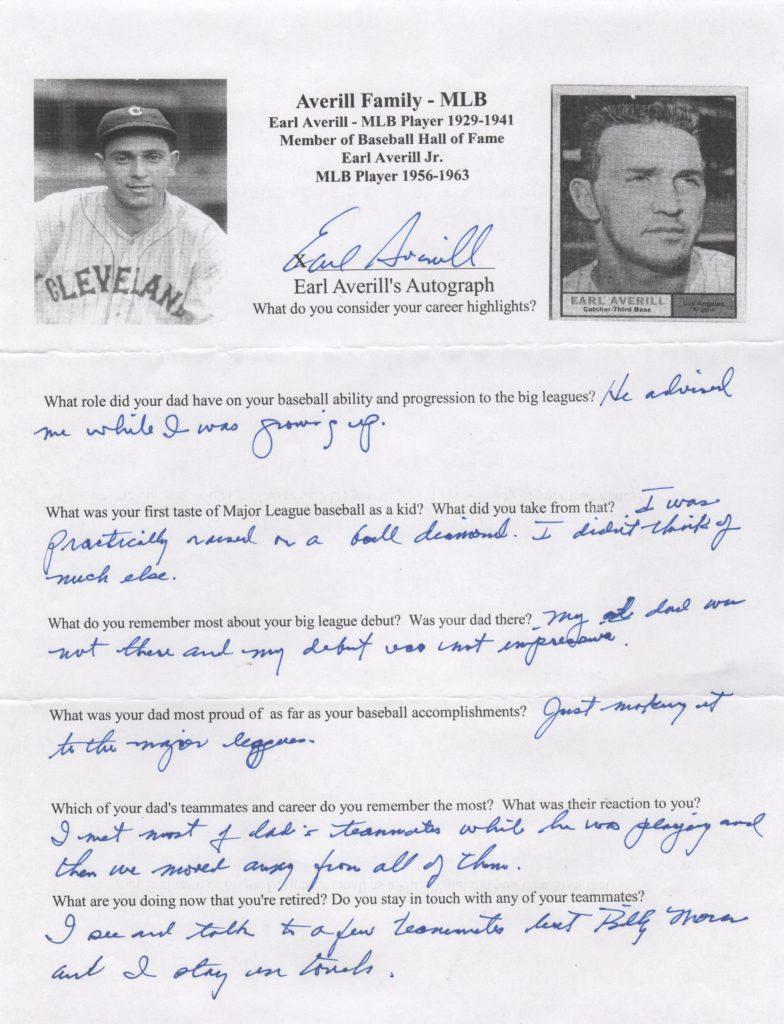 Averill Family - MLB
Earl Averill - MLB Player 1929-1941
Member of Baseball Hall of Fame
Earl Averill Jr.
MLB Player 1956-1963
C
CLEVELAND
X
Earl Averill
Earl Averill's Autograph
What do you consider your career highlights?
EARL AVERILL
Catcher-Third Base
Los Angeles
Angels
What role did your dad have on your baseball ability and progression to the big leagues? He advised
me while I was growing up.
What was your first taste of Major League baseball as a kid? What did you take from that? I was
practically raised on a ball diamond. I didn't think of
much else.
What do you remember most about your big league debut? Was your dad there? My dad was
not there and my debut was not impressive.
What was your dad most proud of as far as your baseball accomplishments? Just making it
to the major leagues.
Which of your dad's teammates and career do you remember the most? What was their reaction to you?
I met most of dad's teammates while he was playing and
then we moved away from all of them.
What are you doing now that you're retired? Do you stay in touch with any of your teammates?
I see and talk to a few teammates but Billy Moran
and I stay in touch.